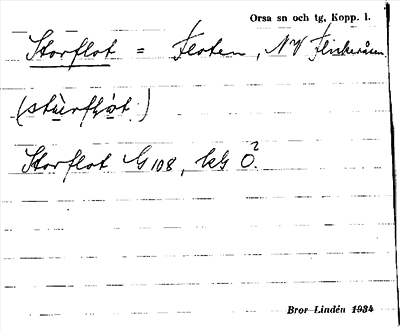 Orsa sn och tg, Kopp. l.
Storflot = Floten, NV Fliskeråsen
(stùrfḷọt)
Storflot G 108, kG Ö?
Bror Lindén 1934